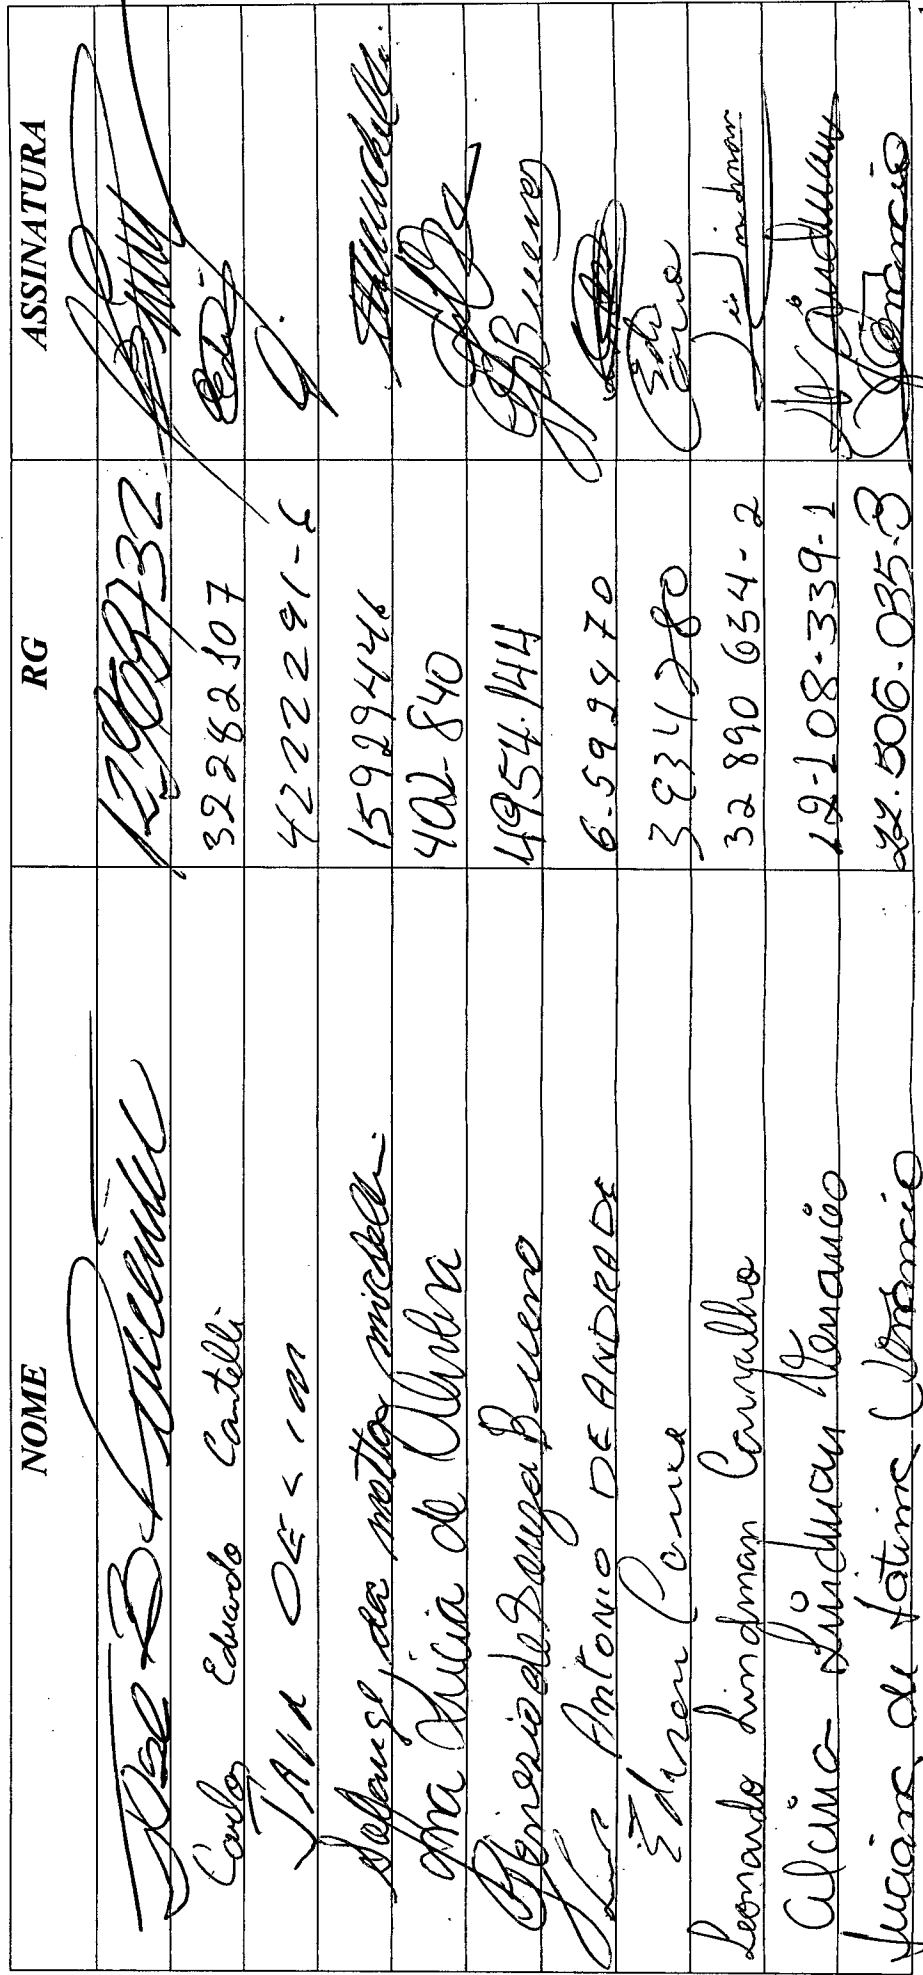 NOME RG ASSINATURA
José B
Carlos Eduardo Cantelli 32282107
4222291-6
Solange da motta micheli 15929446
Ana Lúcia de Oliveira 402-840
de Souza Bueno 4954.144 Bueno
Luis ANTONIO DE ANDRADE 6.599470
Edson 3934280 Edson
Leonardo Lindman Carvalho 32 890 654-2 Léo Lindman
Alcina Lindman Venancio 12-108-339-1
Luciana de Fátima Venancio 22.506.035-3 Venancio